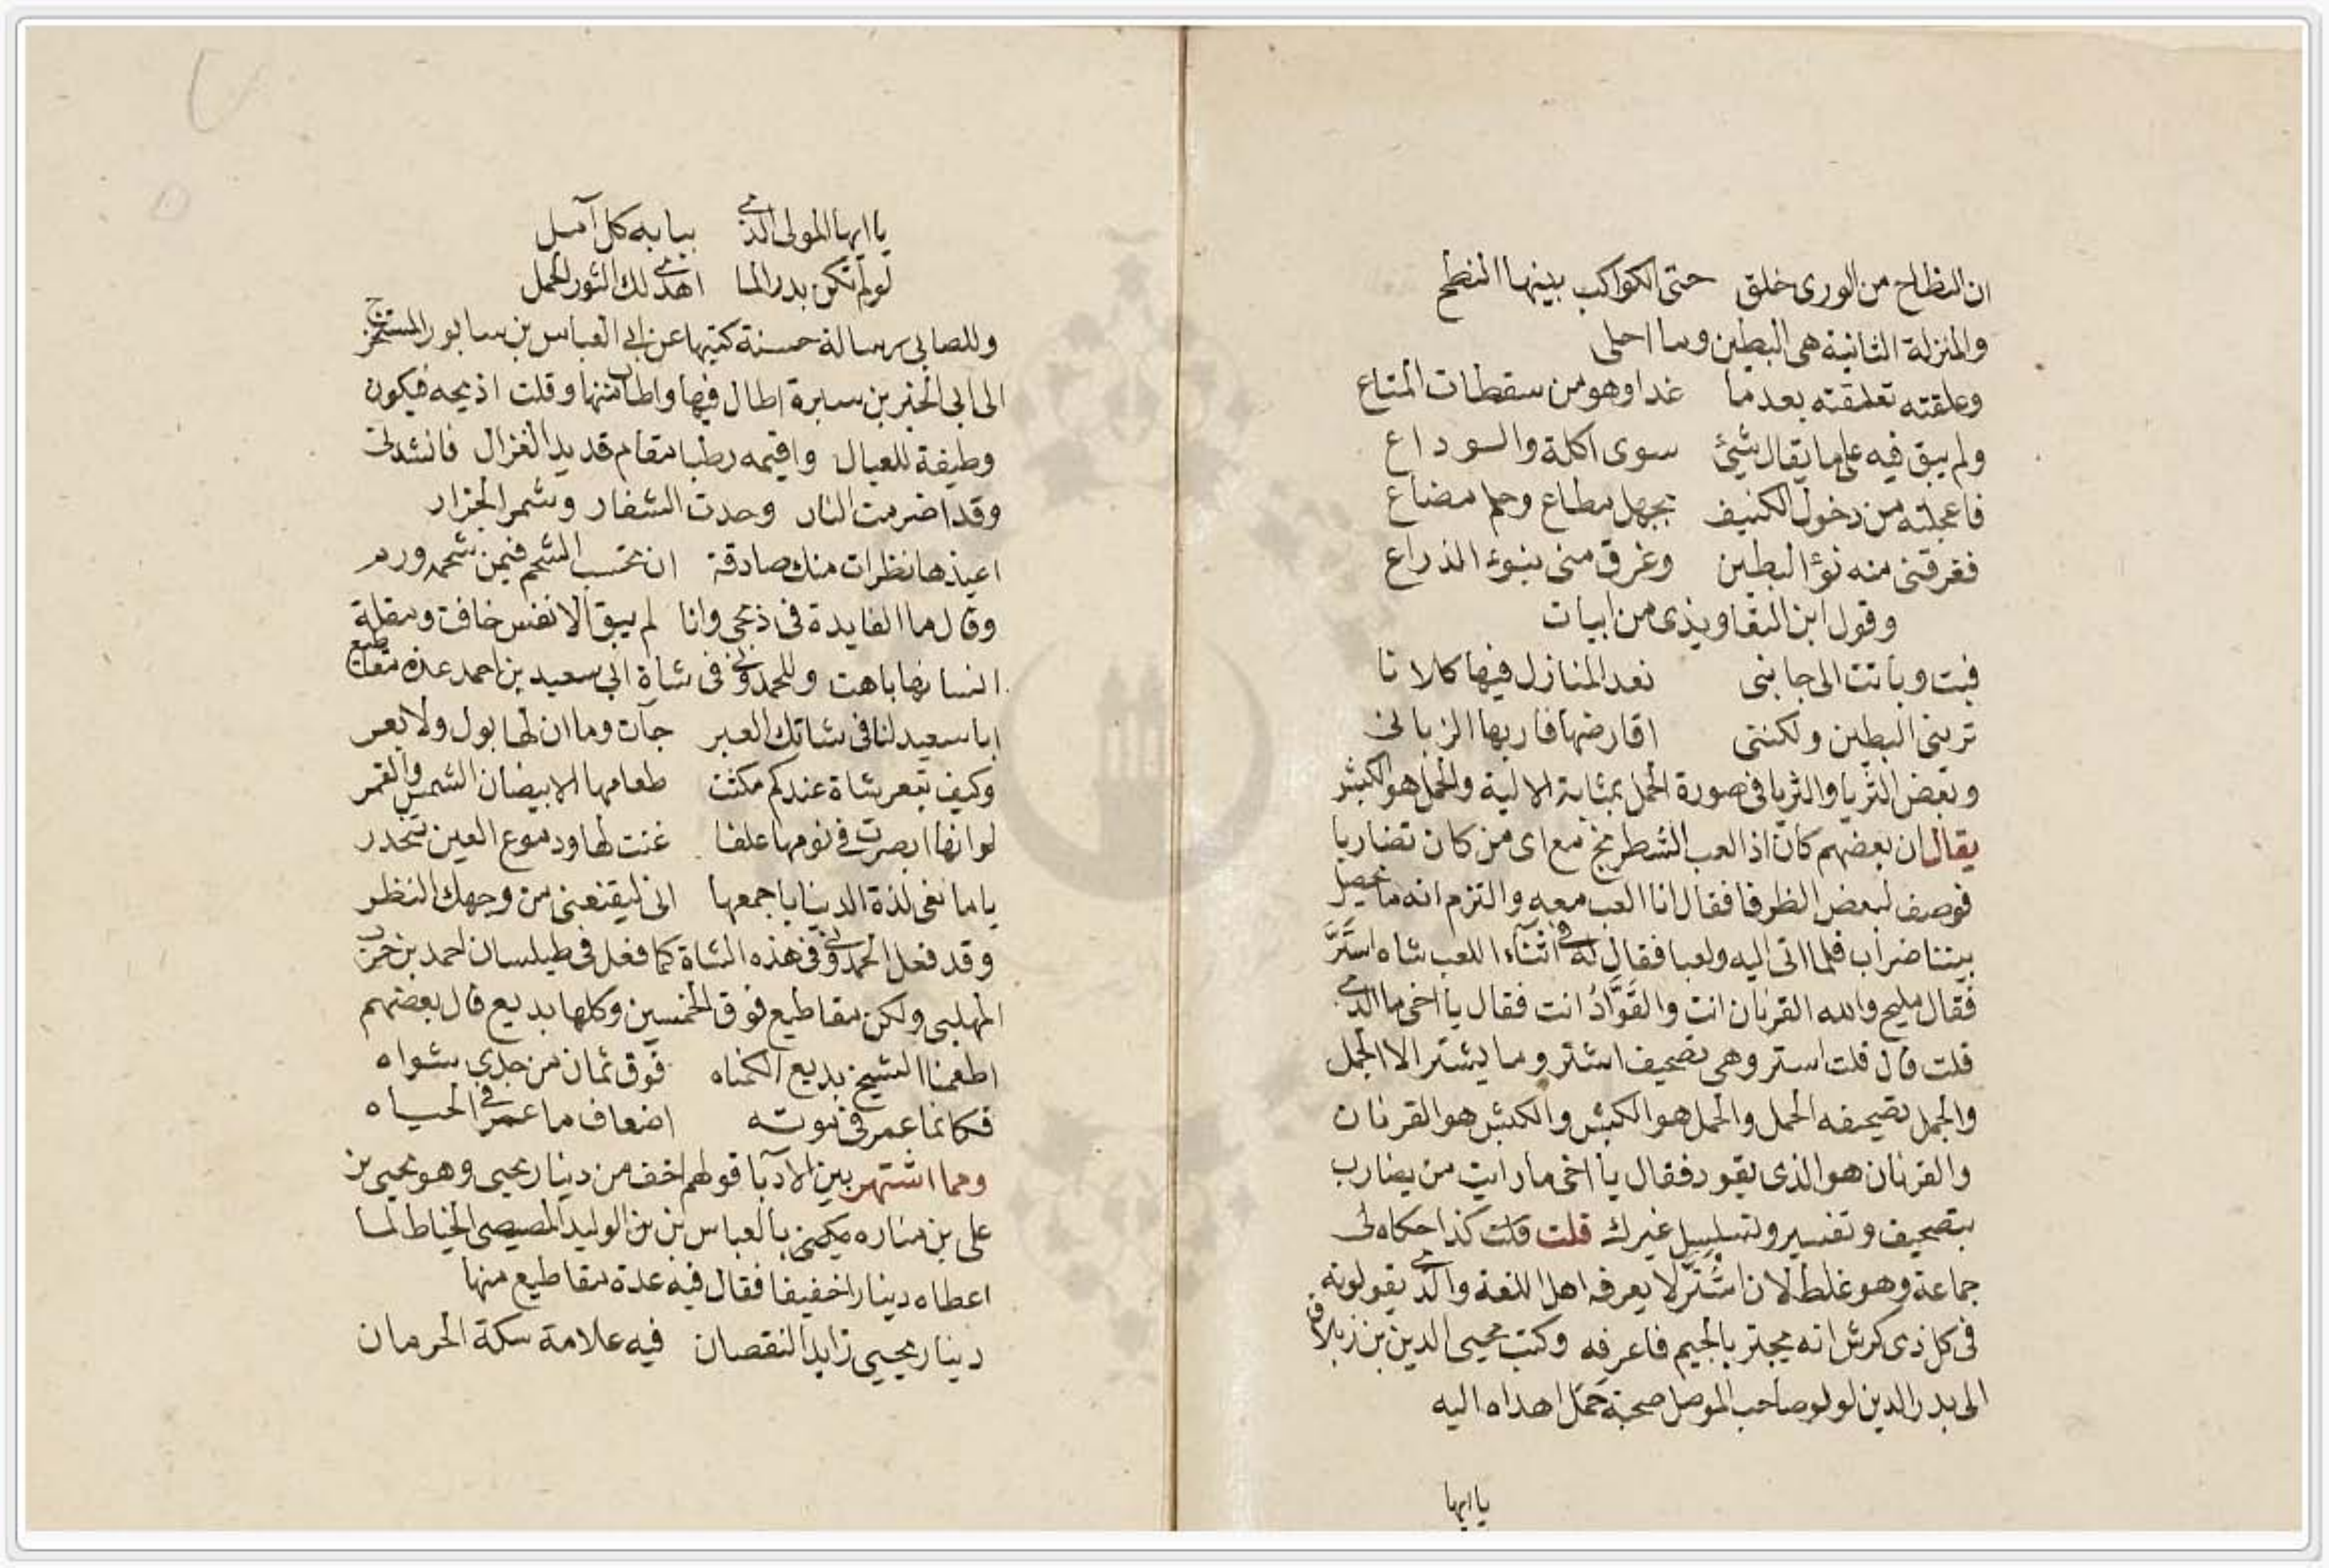 ان النطاح من الورى خلق حتى الكواكب بينها النطح
والمنزلة الثانية هى البطين وما احلى
وعلقته تعلمقته بعدما غدا وهو من سقطات المتاع
ولم يبق فيه على ما يقال شيئ سوى اكلة والسوداع
فاعجلته من دخول الكنيف بجهل مطاع وحلم مضاع
ففرقتنى منه نوؤ البطين وغرق منى بنوء الذراع
وقول ابن التعاويذى من ابيات
فبت وباتت الى جابنى نعد المنازل فيها كلانا
ترينى البطين ولكننى اقارضها فاريها الزبانى
وبعض الثريا والثريا فى صورة الحمل بمثابة الالية والحمل هو الكبش
يقال ان بعضهم كان اذا لعب الشطرنج مع اى من كان تضاربا
فوصف لبعض الظرفا فقال انا العب معه والتزم انه ما يحصل
بيننا ضراب فلما اتى اليه ولعبا فقال له فى اثناء اللعب شاه استَرَّ
فقال مليح والله القرنان انت والقَوَّادُ انت فقال يا اخى ما الذى
قلت قال قلت استر وهى تصحيف اشتر وما يشتر الا الجمل
والجمل تصحيفه الحمل والحمل هو الكبش والكبش هو القرنان
والقرنان هو الذى يقود فقال يا اخى ما رايت من يضارب
بتصحيف وتفسير وتسلسل غيرك قلت قلت كذا حكاه لى
جماعة وهو غلط لان اشترّ لا يعرفه اهل اللغة والذى يقولونه
فى كل ذى كرش انه يجتر بالجيم فاعرفه وكتب محيى الدين بن زبلاق
الى بدر الدين لولو صاحب الموصل صحبة حمل اهداه اليه
يا ايها
يا ايها المولى الذى ببابه كل آمل
لو لم تكن بدر السما اهدى لك الثور الحمل
وللصابى رسالة حسنة كتبها عن ابى العباس بن سابور المستخرج
الى ابى الخير بن سبرة اطال فيها واطاب منها وقلت اذبحه فيكون
وظيفة للعيال واقيمه رطبا مقام قديد الغزال فانشدنى
وقد اضرمت النار وحدت الشفار وشمر الجزار
اعيذها نظرات منك صادقة ان تحسب الشحم فيمن شحمه ورم
وقال ما الفايدة فى ذبحى وانا لم يبق الا نفس خافت ومقلة
انسانها باهت وللحمدونى فى شاة ابى سعيد بن احمد عدة مقاطيع
ابا سعيد لنا فى شاتك العبر جآت وما ان لها بول ولا بعر
وكيف تبعر شاة عندكم مكثت طعامها الابيضان الشمس والقمر
لو انها ابصرت فى نومها علفا غنت لها ودموع العين تنحدر
يا مانعى لذة الدنيا باجمعها انى ليقنعنى من وجهك النظر
وقد فعل الحمدونى فى هذه الشاة كما فعل فى طيلسان احمد بن حرب
المهلبى ولكن مقاطيع فوق الخمسين وكلها بديع قال بعضهم
اطعمنا الشيخ بديع الكناه فوق ثمان من جدى شواه
فكانما عمر فى موته اضعاف ما عمر فى الحياه
ومما اشتهر بين الادبا قولهم اخف من دينار يحيى وهو يحيى بن
على بن مناره يكنى بالعباس بن بن الوليد المصيصى الخياط لما
اعطاه دينارا خفيفا فقال فيه عدة مقاطيع منها
دينار يحيى زايد النقصان فيه علامة سكة الحرمان